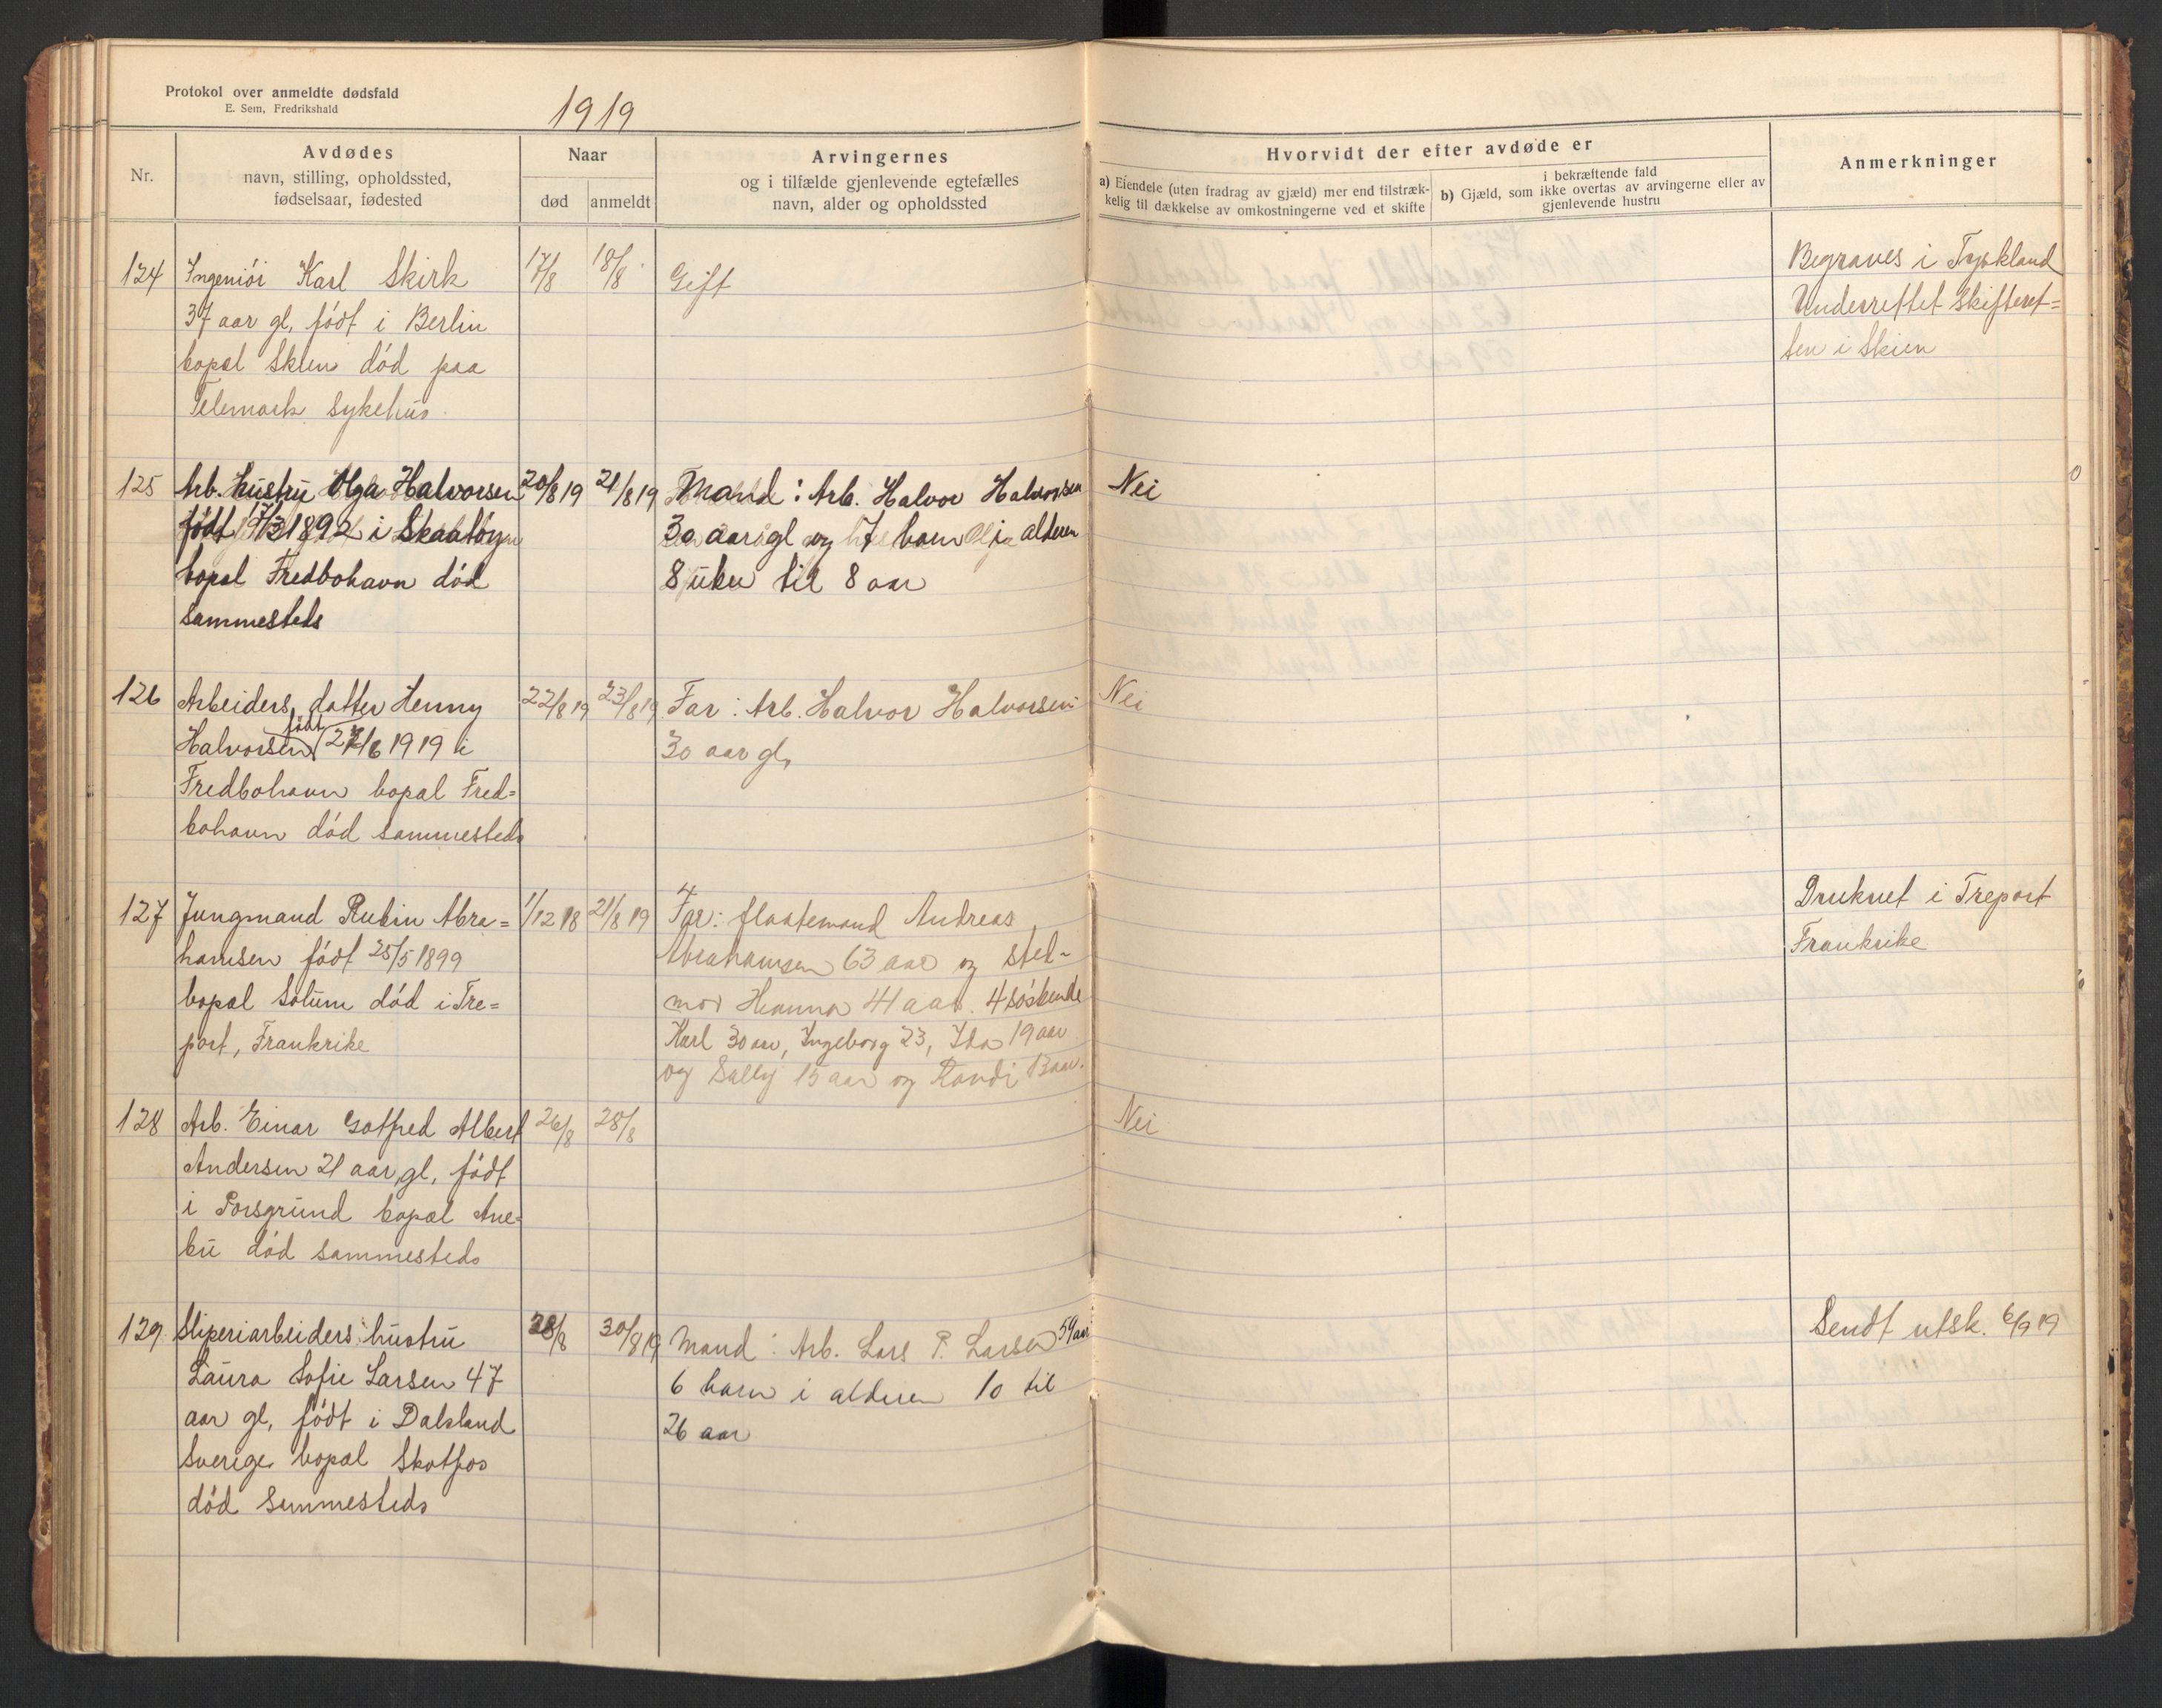 Protokol over anmeldte dødsfald
E. Sem, Fredrikshald
1919
Nr.
Avdødes
navn, stilling, opholdssted,
fødselsaar, fødested
Naar
død
anmeldt
Arvingernes
og i tilfælde gjenlevende egtefælles
navn, alder og opholdssted
Hvorvidt der efter avdøde er
a) Eiendele (uten fradrag av gjæld) mer end tilstræk-
kelig til dækkelse av omkostningerne ved et skifte
i bekræftende fald
b) Gjæld, som ikke overtas av arvingerne eller av
gjenlevende hustru
Anmerkninger
124 Ingeniör Karl Skirk 17/8 18/8 Gift Begraves i Tyskland
37 aar gl, födt i Berlin Underrettet Skifteret=
bopæl Skien död paa ten i Skien
Telemark Sykehus.
125 Arb. hustru Olga Halvorsen 20/8 19 21/8 19 Mand: Arb. Halvor Halvorsen Nei
födt 1892 i 30 aar gl og 7 barn i alderen
bopæl Fredbohavn död 8 uker til 8 aar
sammesteds
126 Arbeiders datter Henny 22/8 19 23/8 19 Far: Arb. Halvor Halvorsen Nei
Halvorsen födt /6 1919 i 30 aar gl,
Fredbohavn bopæl Fred=
bohavn död sammesteds
127 Jungmand Rubin Abra= 1/12 18 21/8 19 Far: flaatemand Andreas Druknet i Treport
hamsen födt 25/5 1899 Abrahamsen 63 aar og stef- Frankrike
bopæl Solum död i Tre= mor Hanna 41 aar. 4 söskende
port, Frankrike Karl 30 aar, Ingeborg 23, 19 aar
og Sally 15 aar og Randi 13 aar.
128 Arb. Einar Gotfred Albert 26/8 28/8 Nei
Andersen 21 aar gl, födt
i Porsgrund bopæl Ane=
bu död sammesteds
129 Sliperiarbeiders hustru 28/8 30/8 19 Mand: Arb. Lars P. Larsen 54 aar Sendt utsk. 6/9 19
Laura Sofie Larsen 47 6 barn i alderen 10 til
aar gl, födt i Dalsland 26 aar
Sverige bopæl Skotfos
död Sammesteds